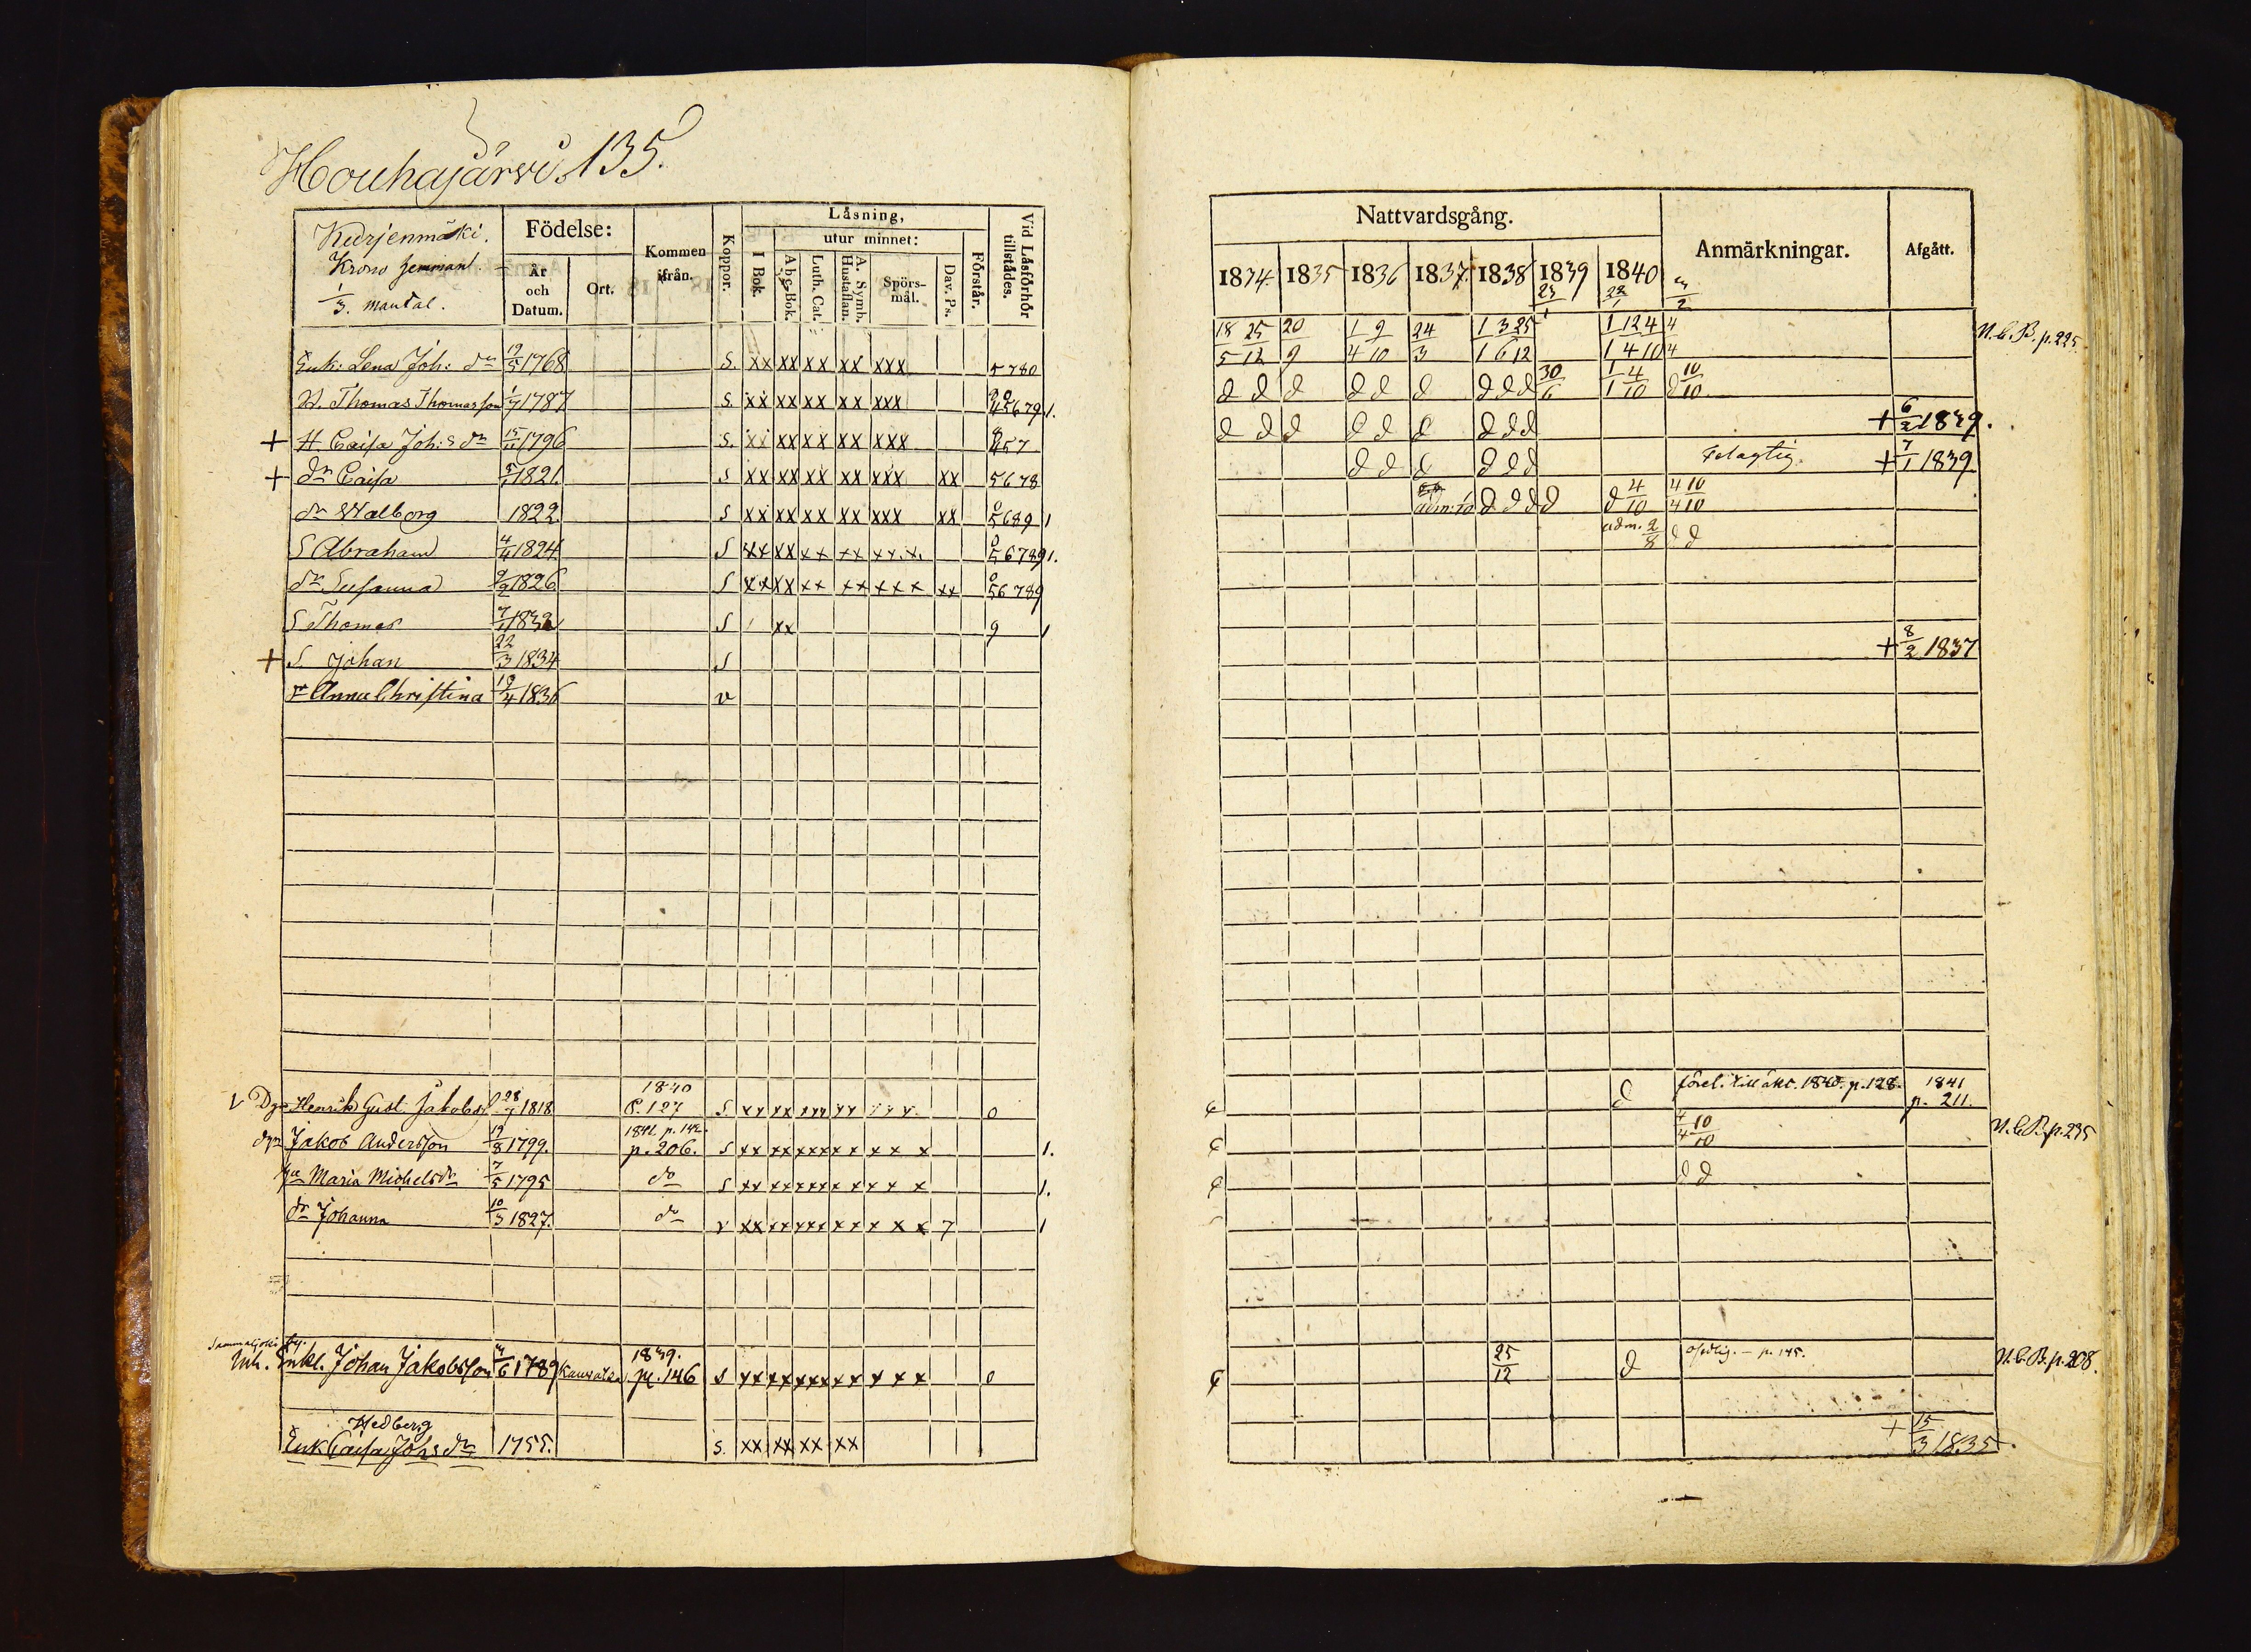 Houhajärvi. 135.
Kurjenmäki.
Krono hemmant.
1/3. mantal.
Födelse:
År och Datum.
Ort.
Kommen ifrån.
Koppor.
Läsning,
I Bok.
utur minnet:
A b c-Bok.
Luth. Cat.
A. Symb. Hustaflan.
Spörs-mål.
Dav. Ps.
Förstår.
Vid Läsförhör tillstådes.
Enk: Lena Joh: dr 19/5 1768 S. xx xx xx xx xxx 5 780
W. Thomas Thomasson 1/7 1787 S. xx xx xx xx xxx 45679 1.
+ H. Caisa Joh:s dr 15/11 1796 S. xx xx xx xx xxx 457
+ dr Caisa 1821 S xx xx xx xx xxx xx 5678
dr Walborg 1822 S xx xx xx xx xxx xx 5689 1
S Abraham 4/4 1824 S xx xx xx xx xxx 56789 1.
dr Susanna 9/2 1826 S xx xx xx xx xxx xx 56789
S Thomas 1832 S xx 9 1
+ S. Johan 22/3 1834 S
dr Anna Christina 19/4 1836 v
V Dg Henrik Gust. Jakobss 28/7 1818 1840 P. 127 S xx xx xxx xx xxx 0
dgn Jakob Andersson 19/8 1799. 1841. p. 142. p. 206. S xx xx xxxx x x x x 1.
Maria Michelsdr 7/5 1795 do S xx xx xxxx x x x x 1.
dr Johanna 10/3 1827. do v xx xx xxx x x x x x 7 1
Sammaljoki by.
Inh. Enkl. Johan Jakobsson 1789 Kauvatsa 1839. p. 146 S xx xx xxx x x x x x 0
Hedberg
Enk Caisa Johs dr 1755. S. xx xx xx xx
Nattvardsgång.
Anmärkningar.
Afgått.
1834. 1835 1836 1837. 1838 1839 1840
18 25 20 1 9 24 1 3 25 1 12 4 4 N.C.B. p. 225.
5 12 9 4 10 3 1 6 12 1 4 10 4
d d d d d d d d d 30/6 1/1 4/10 d 10/10
d d d d d d d d d + 6/2 1839.
d d d d d d Felagtig. + 7/1 1839
adm: 10 d d d d d 4/10 4 10 4 10
adm. 2/8 d d
+ 8/2 1837
d förel. till äkt. 1840. p. 128. 1841 p. 211.
4 10 4 10 N.C.B. p. 235
d d
25/12 d p. 145. N.C.B. p. 208.
+ 15/3 1835.